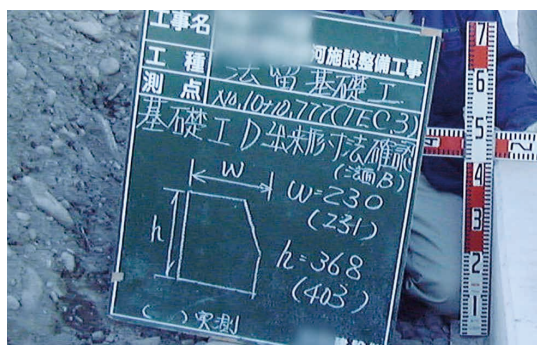 工事名
河施設整備工事
工種 法留基礎工
測点 No.10+0.777(TEC.3)
基礎工D出来形寸法確認
(法面B)
W
W=230
(231)
h
h=368
(403)
( )実測
7
6
5
4
3
2
1